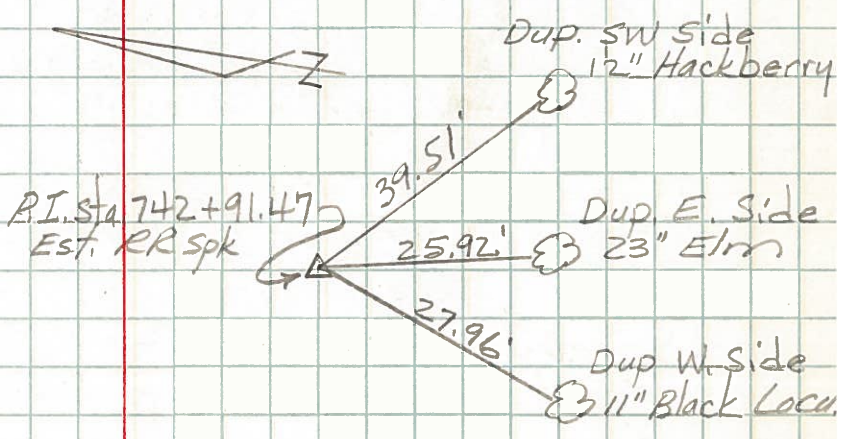 Z
Dup. SW Side
12" Hackberry
39.51'
P.I. Sta 742+91.47
Est. RR Spk
25.92'
Dup. E. Side
23" Elm
27.96'
Dup W. Side
11" Black Locu.